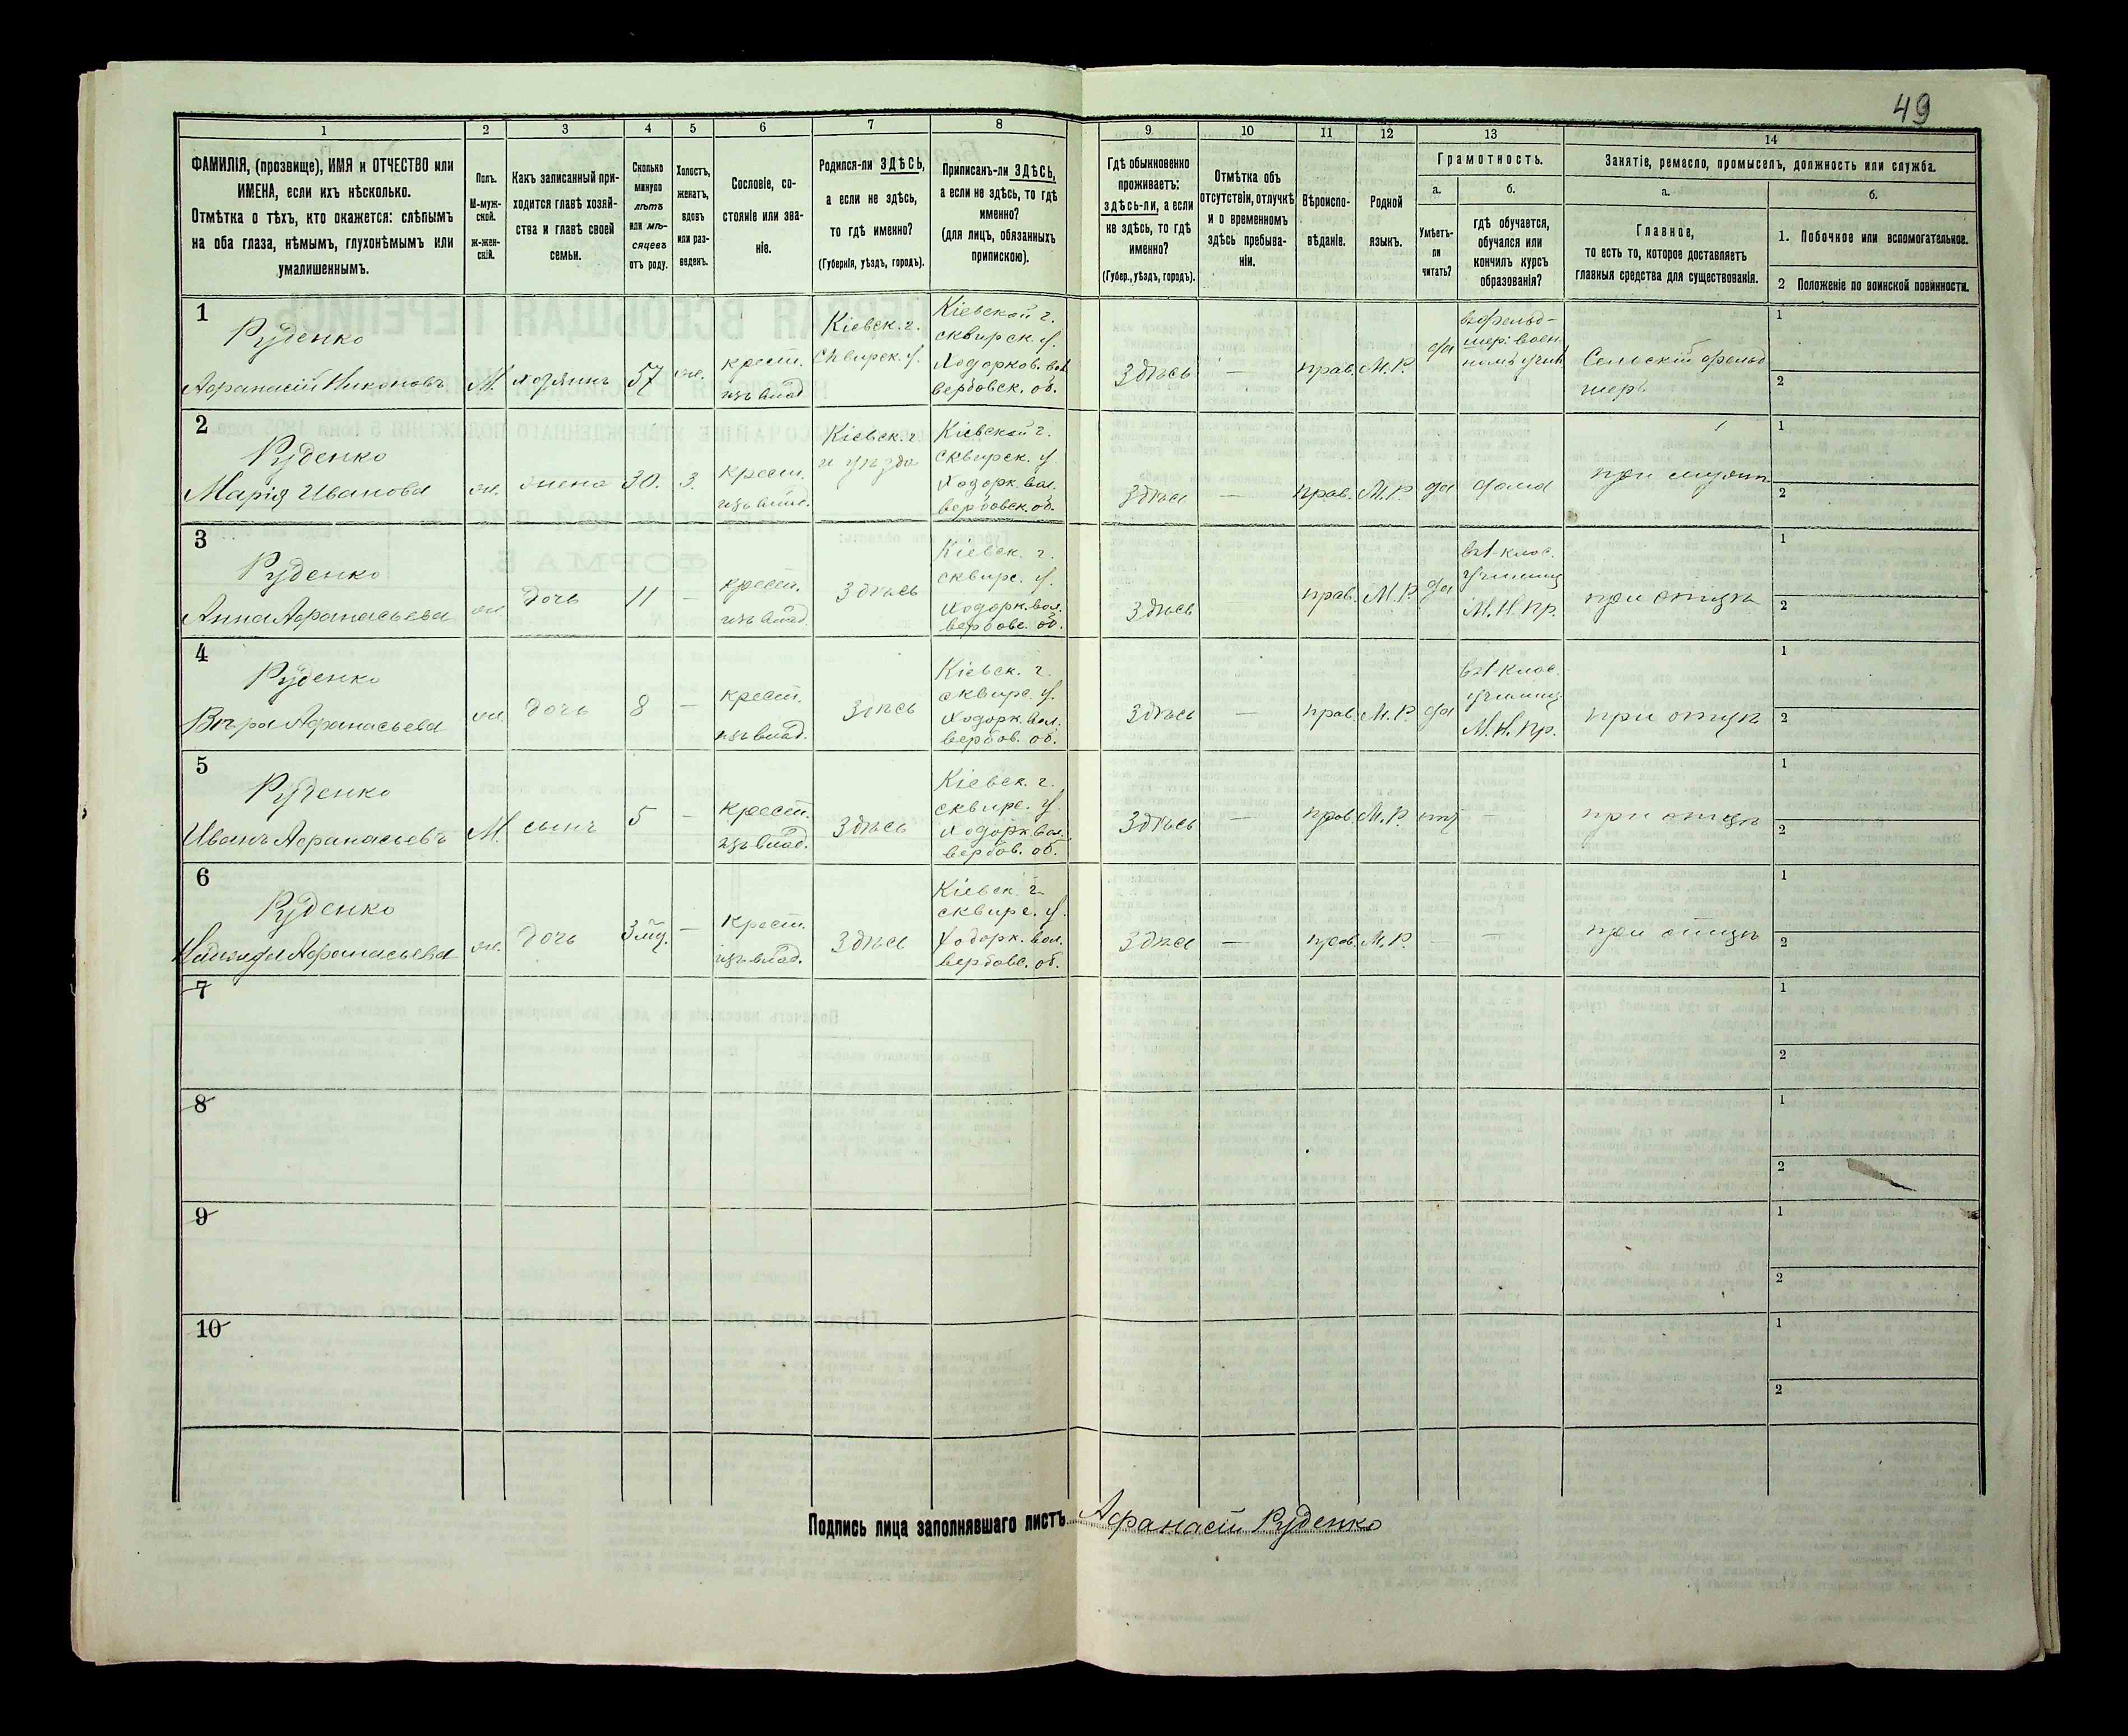 49
1 2 3 4 5 6 7 8 9 10 11 12 13 14
ФАМИЛІЯ, (прозвище), ИМЯ и ОТЧЕСТВО или
ИМЕНА, если ихъ нѣсколько.
Отмѣтка о тѣхъ, кто окажется: слѣпымъ
на оба глаза, нѣмымъ, глухонѣмымъ или
умалишеннымъ.
Полъ.
М-муж-
ской.
ж-жен-
скій.
Какъ записанный при-
ходится главѣ хозяй-
ства и главѣ своей
семьи.
Сколько
минуло
лѣтъ
или мѣ-
сяцевъ
отъ роду.
Холостъ,
женатъ,
вдовъ
или раз-
веденъ.
Сословіе, со-
стояніе или зва-
ніе.
Родился-ли ЗДѢСЬ,
а если не здѣсь,
то гдѣ именно?
(Губернія, уѣздъ, городъ).
Приписанъ-ли ЗДѢСЬ,
а если не здѣсь, то гдѣ
именно?
(для лицъ, обязанныхъ
припискою).
Гдѣ обыкновенно
проживаетъ:
здѣсь-ли, а если
не здѣсь, то гдѣ
именно?
(Губер., уѣздъ, городъ).
Отмѣтка объ
отсутствіи, отлучкѣ
и о временномъ
здѣсь пребыва-
ніи.
Вѣроиспо-
вѣданіе.
Родной
языкъ.
Грамотность.
а.
Умѣетъ-
ли
читать?
б.
гдѣ обучается,
обучался или
кончилъ курсъ
образованія?
Занятіе, ремесло, промыселъ, должность или служба.
а.
Главное,
то есть то, которое доставляетъ
главныя средства для существованія.
б.
1. Побочное или вспомогательное.
2 Положеніе по воинской повинности.
1
Руденко
Афанасій Никоновъ
М.
хозяинъ
57
крест.
изъ влад.
Кіевск. г.
Сквирск. у.
Кіевской г.
сквирск. у.
Ходорков. вол.
вербовск. об.
Здѣсь
—
прав.
М.Р.
да
въ фельд-
шер. воен-
номъ учил.
Сельскій фельд
шеръ
1
2
2
Руденко
Марія Иванова
ж.
жена
30.
З.
крест.
изъ влад.
Кіевск. г.
и уѣзда
Кіевской г.
сквирск. у.
Ходорк. вол.
вербовск. об.
Здѣсь
—
прав.
М.Р.
да
дома
при мужѣ
1
2
3
Руденко
Анна Афанасьева
ж.
дочь
11
—
крест.
изъ влад.
Здѣсь
Кіевск. г.
сквирс. у.
Ходорк. вол.
вербовс. об.
Здѣсь
прав.
М.Р.
да
въ 1 клас.
училищ
М.Н.Пр.
при отцѣ
1
2
4
Руденко
Вѣра Афанасьева
ж.
дочь
8
—
крест.
изъ влад.
Здѣсь
Кіевск. г.
сквирс. у.
Ходорк. вол.
вербов. об.
Здѣсь
—
прав.
М.Р.
да
въ 1 клас.
училищ
М.Н.Пр.
при отцѣ
1
2
5
Руденко
Иванъ Афанасьевъ
М.
сынъ
5
—
крест.
изъ влад.
Здѣсь
Кіевск. г.
сквирс. у.
Ходорк вол.
вербов. об.
Здѣсь
—
прав.
М.Р.
нѣт
—
при отцѣ
1
2
6
Руденко
Надежда Афанасьева
ж.
дочь
3 мѣ.
—
крест.
изъ влад.
Здѣсь
Кіевск. г.
сквирс. у.
Ходорк. вол.
вербовс. об.
Здѣсь
—
прав.
М.Р.
—
—
при отцѣ
1
2
7
1
2
8
1
2
9
1
2
10
1
2
Подпись лица заполнявшаго листъ Афанасій Руденко